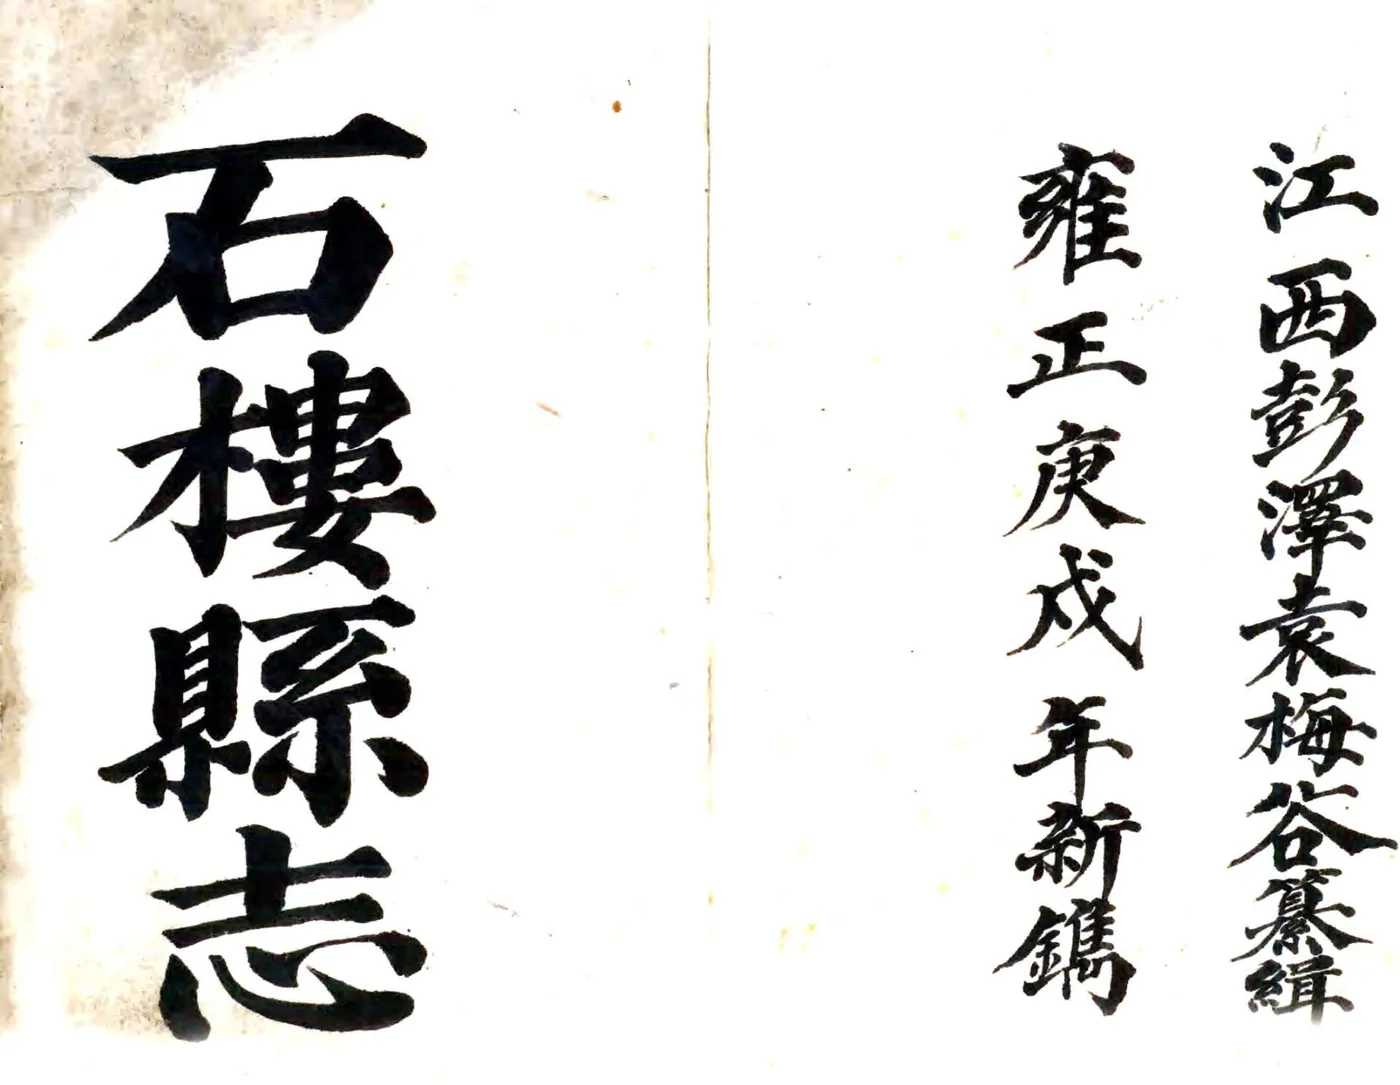 江西彭澤袁梅谷纂緝
雍正庚戍年新鐫
石樓縣志